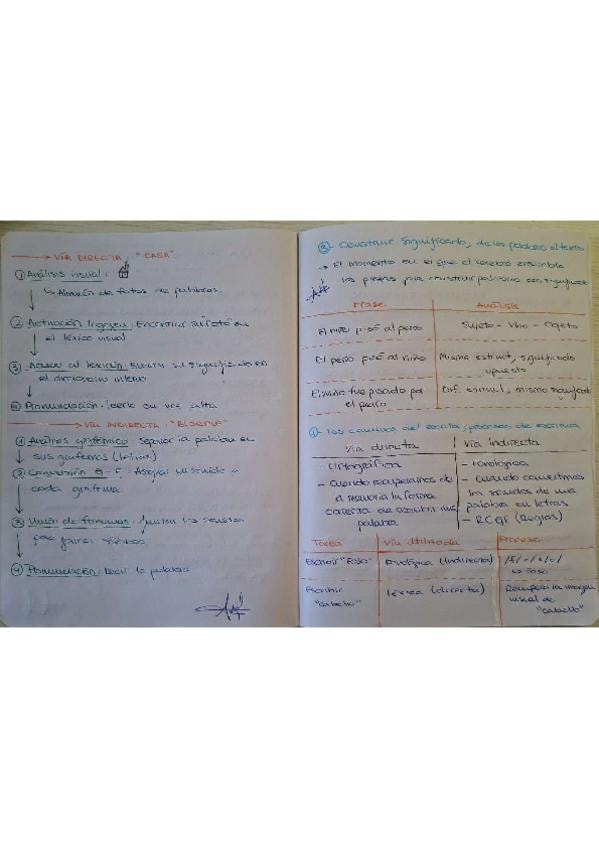 → VÍA DIRECTA : "CASA"
① Análisis visual :
↳ Almacén de fotos de palabras.
② Activación lógogeu : Encontrar su foto en
el léxico visual
③ Acceso al lexicón : Buscar su significado en
el diccionario interno
④ Pronunciación : leerlo en voz alta
→ VÍA INDIRECTA :
① Análisis grafémico : Separar la palabra en
sus grafemas (letras)
② Conversión G - F : Asignar un sonido a
cada grafema
③ Unión de fonemas : Juntar los sonidos
para formar sílabas
④ Pronunciación : Decir la palabra
③- Construir significado, de las palabras al texto
→ El momento en el que el cerebro ensambla
las piezas para construir palabras con significado
Frase Análisis
El niño pisó al perro Sujeto - Vbo - Objeto
El perro pisó al niño Misma estruct, significado
opuesto
El niño fue pisado por Dif. estruct, mismo significado
el perro
④- Los caminos del escrito, procesos de escritura
Vía directa Vía indirecta
- Ortográfica - Fonológica
- Cuando recuperamos de - Cuando convertimos
la memoria la forma los sonidos de una
correcta de escribir una palabra en letras
palabra - RCGF (Reglas)
Tarea Vía utilizada Proceso
Escribir "Foso" Fonológica (Indirecta)
Escribir Léxica (directa) Recupera la imagen
"cabello" visual de
"cabello"